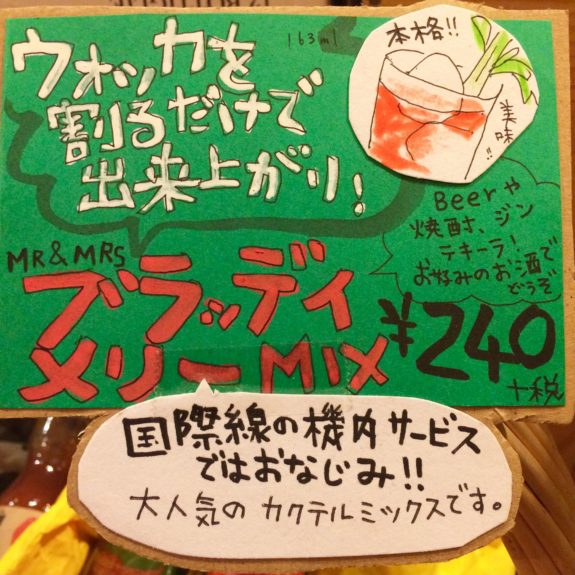 ウォッカを
163ml
割るだけで
出来上がり!
本格!!
美味!!
Beerや
焼酎、ジン
テキーラ!
お好みのお酒で
どうぞ
MR&MRS
ブラッディ
メリーMIX
¥240
+税
国際線の機内サービス
ではおなじみ!!
大人気のカクテルミックスです。